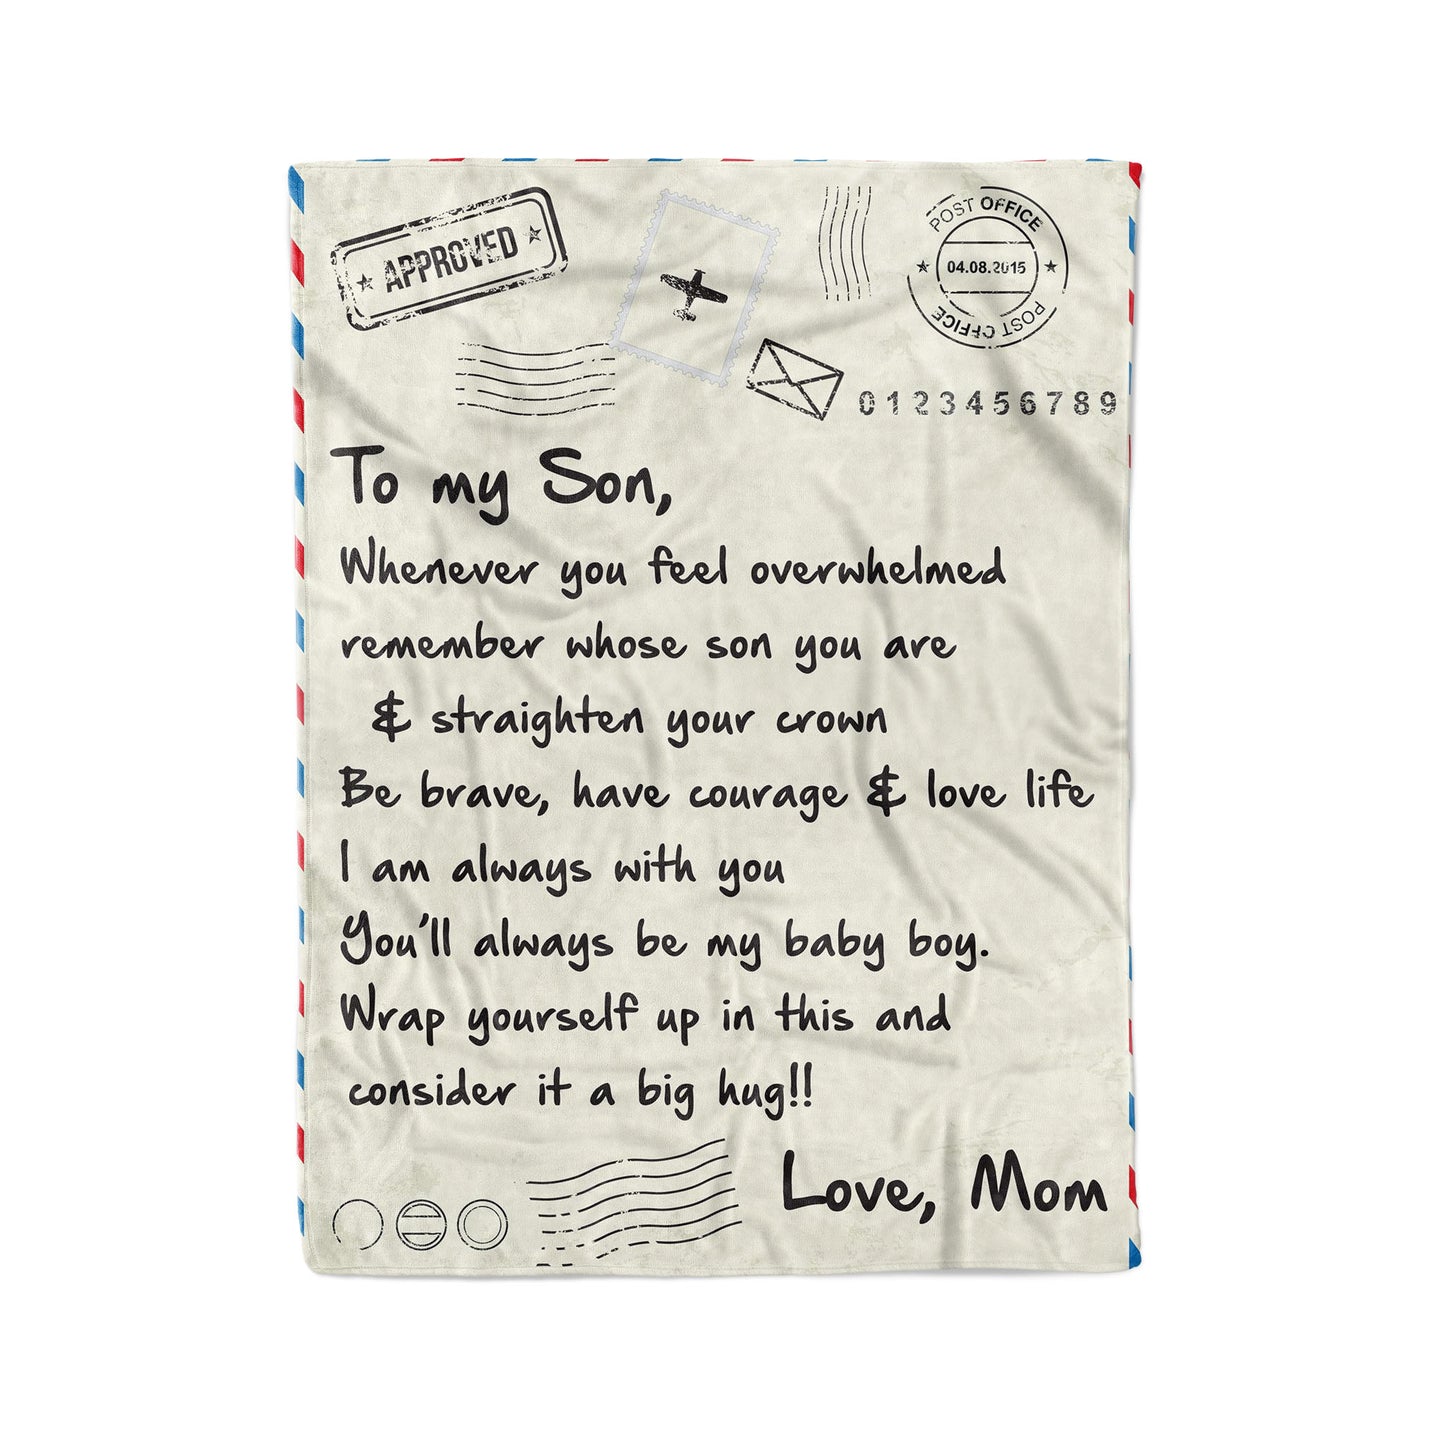 APPROVED
POST OFFICE
04.08.2015
POST OFFICE
0123456789
To my Son,
Whenever you feel overwhelmed
remember whose son you are
& straighten your crown
Be brave, have courage & love life
I am always with you
You'll always be my baby boy.
Wrap yourself up in this and
consider it a big hug!!
Love, Mom